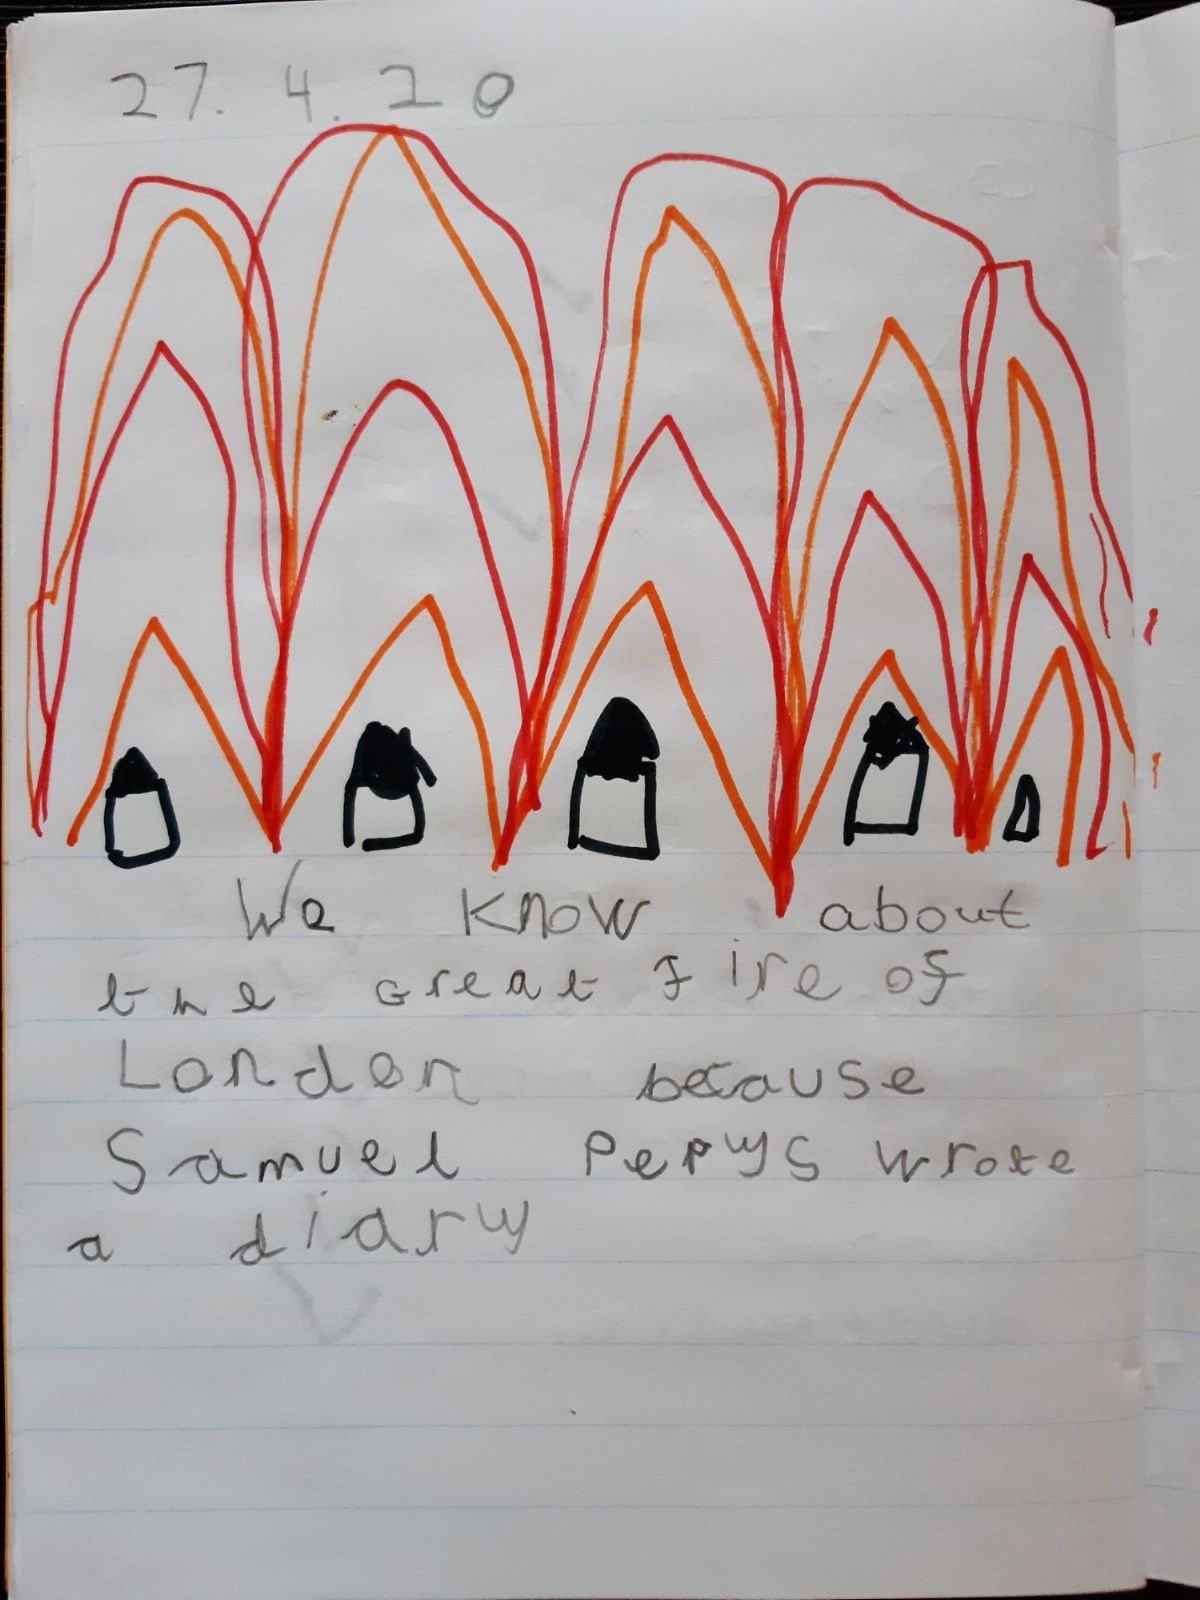 27. 4. 20
We know about
the Great Fire of
London because
Samuel Pepys wrote
a diary